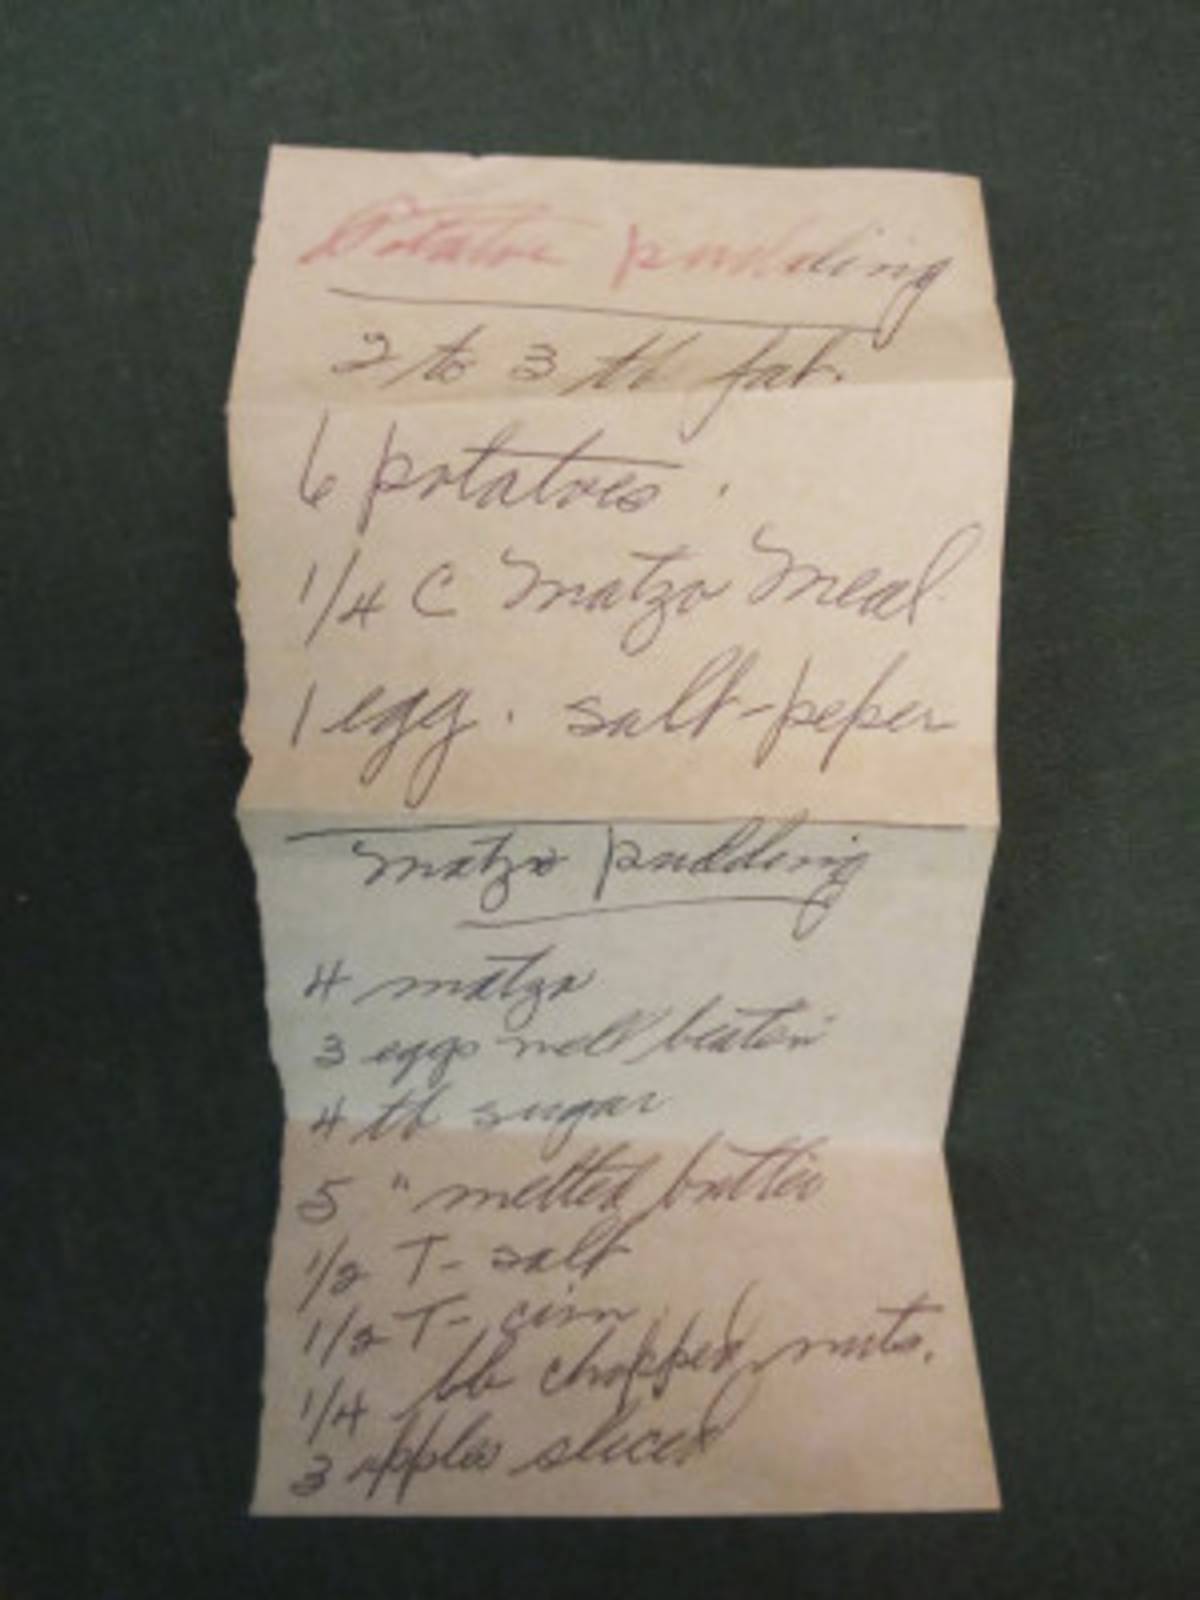 Potatoe pudding
2 to 3 tb fat.
6 potatoes.
1/4 C Matzo Meal
1 egg. salt-peper
Matzo pudding
4 matzo
3 eggs well beaten
4 tb sugar
5 " melted butter
1/2 T- salt
1/2 T- cinn
1/4 lb chopped nuts.
3 apples sliced